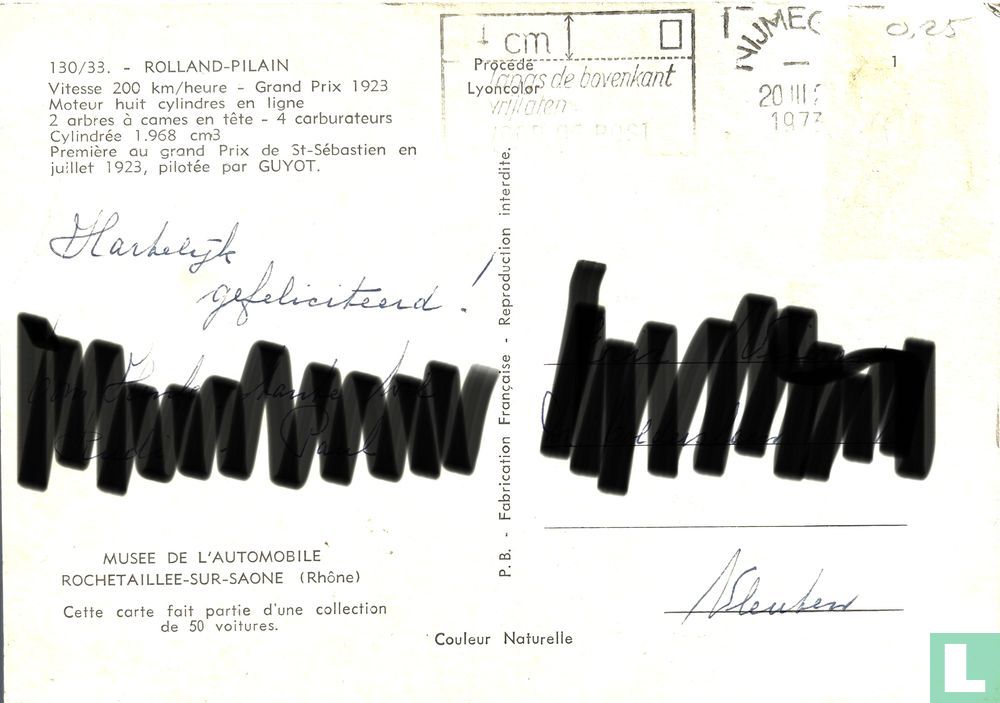 130/33. - ROLLAND-PILAIN
Vitesse 200 km/heure - Grand Prix 1923
Moteur huit cylindres en ligne
2 arbres à cames en tête - 4 carburateurs
Cylindrée 1.968 cm3
Première au grand Prix de St-Sébastien en
juillet 1923, pilotée par GUYOT.
Harkelijk
gefeliciteerd!
MUSEE DE L'AUTOMOBILE
ROCHETAILLEE-SUR-SAONE (Rhône)
Cette carte fait partie d'une collection
de 50 voitures.
Couleur Naturelle
P.B. - Fabrication Française - Reproduction interdite.
Procédé
Lyoncolor
cm
langs de bovenkant
vrijlaten
NIJMEG
20 III
1973
0,25
1
Vleuten
L